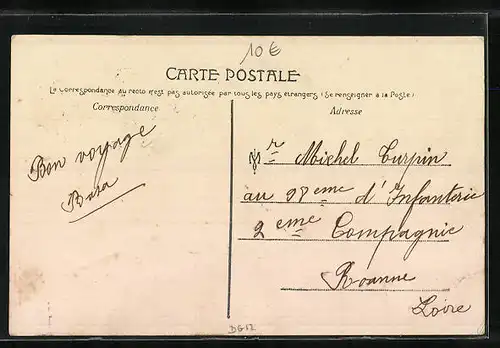 10€
CARTE POSTALE
La Correspondance au recto n'est pas autorisée par tous les pays étrangers (Se renseigner à la Poste)
Correspondance
Adresse
Bon voyage
Mr Michel Turpin
au 98eme d'Infanterie
2eme Compagnie
Roanne
Loire